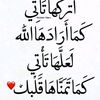 اتركها تأتي
كما أرادها الله
لعلها تأتي
كما تمناها قلبك